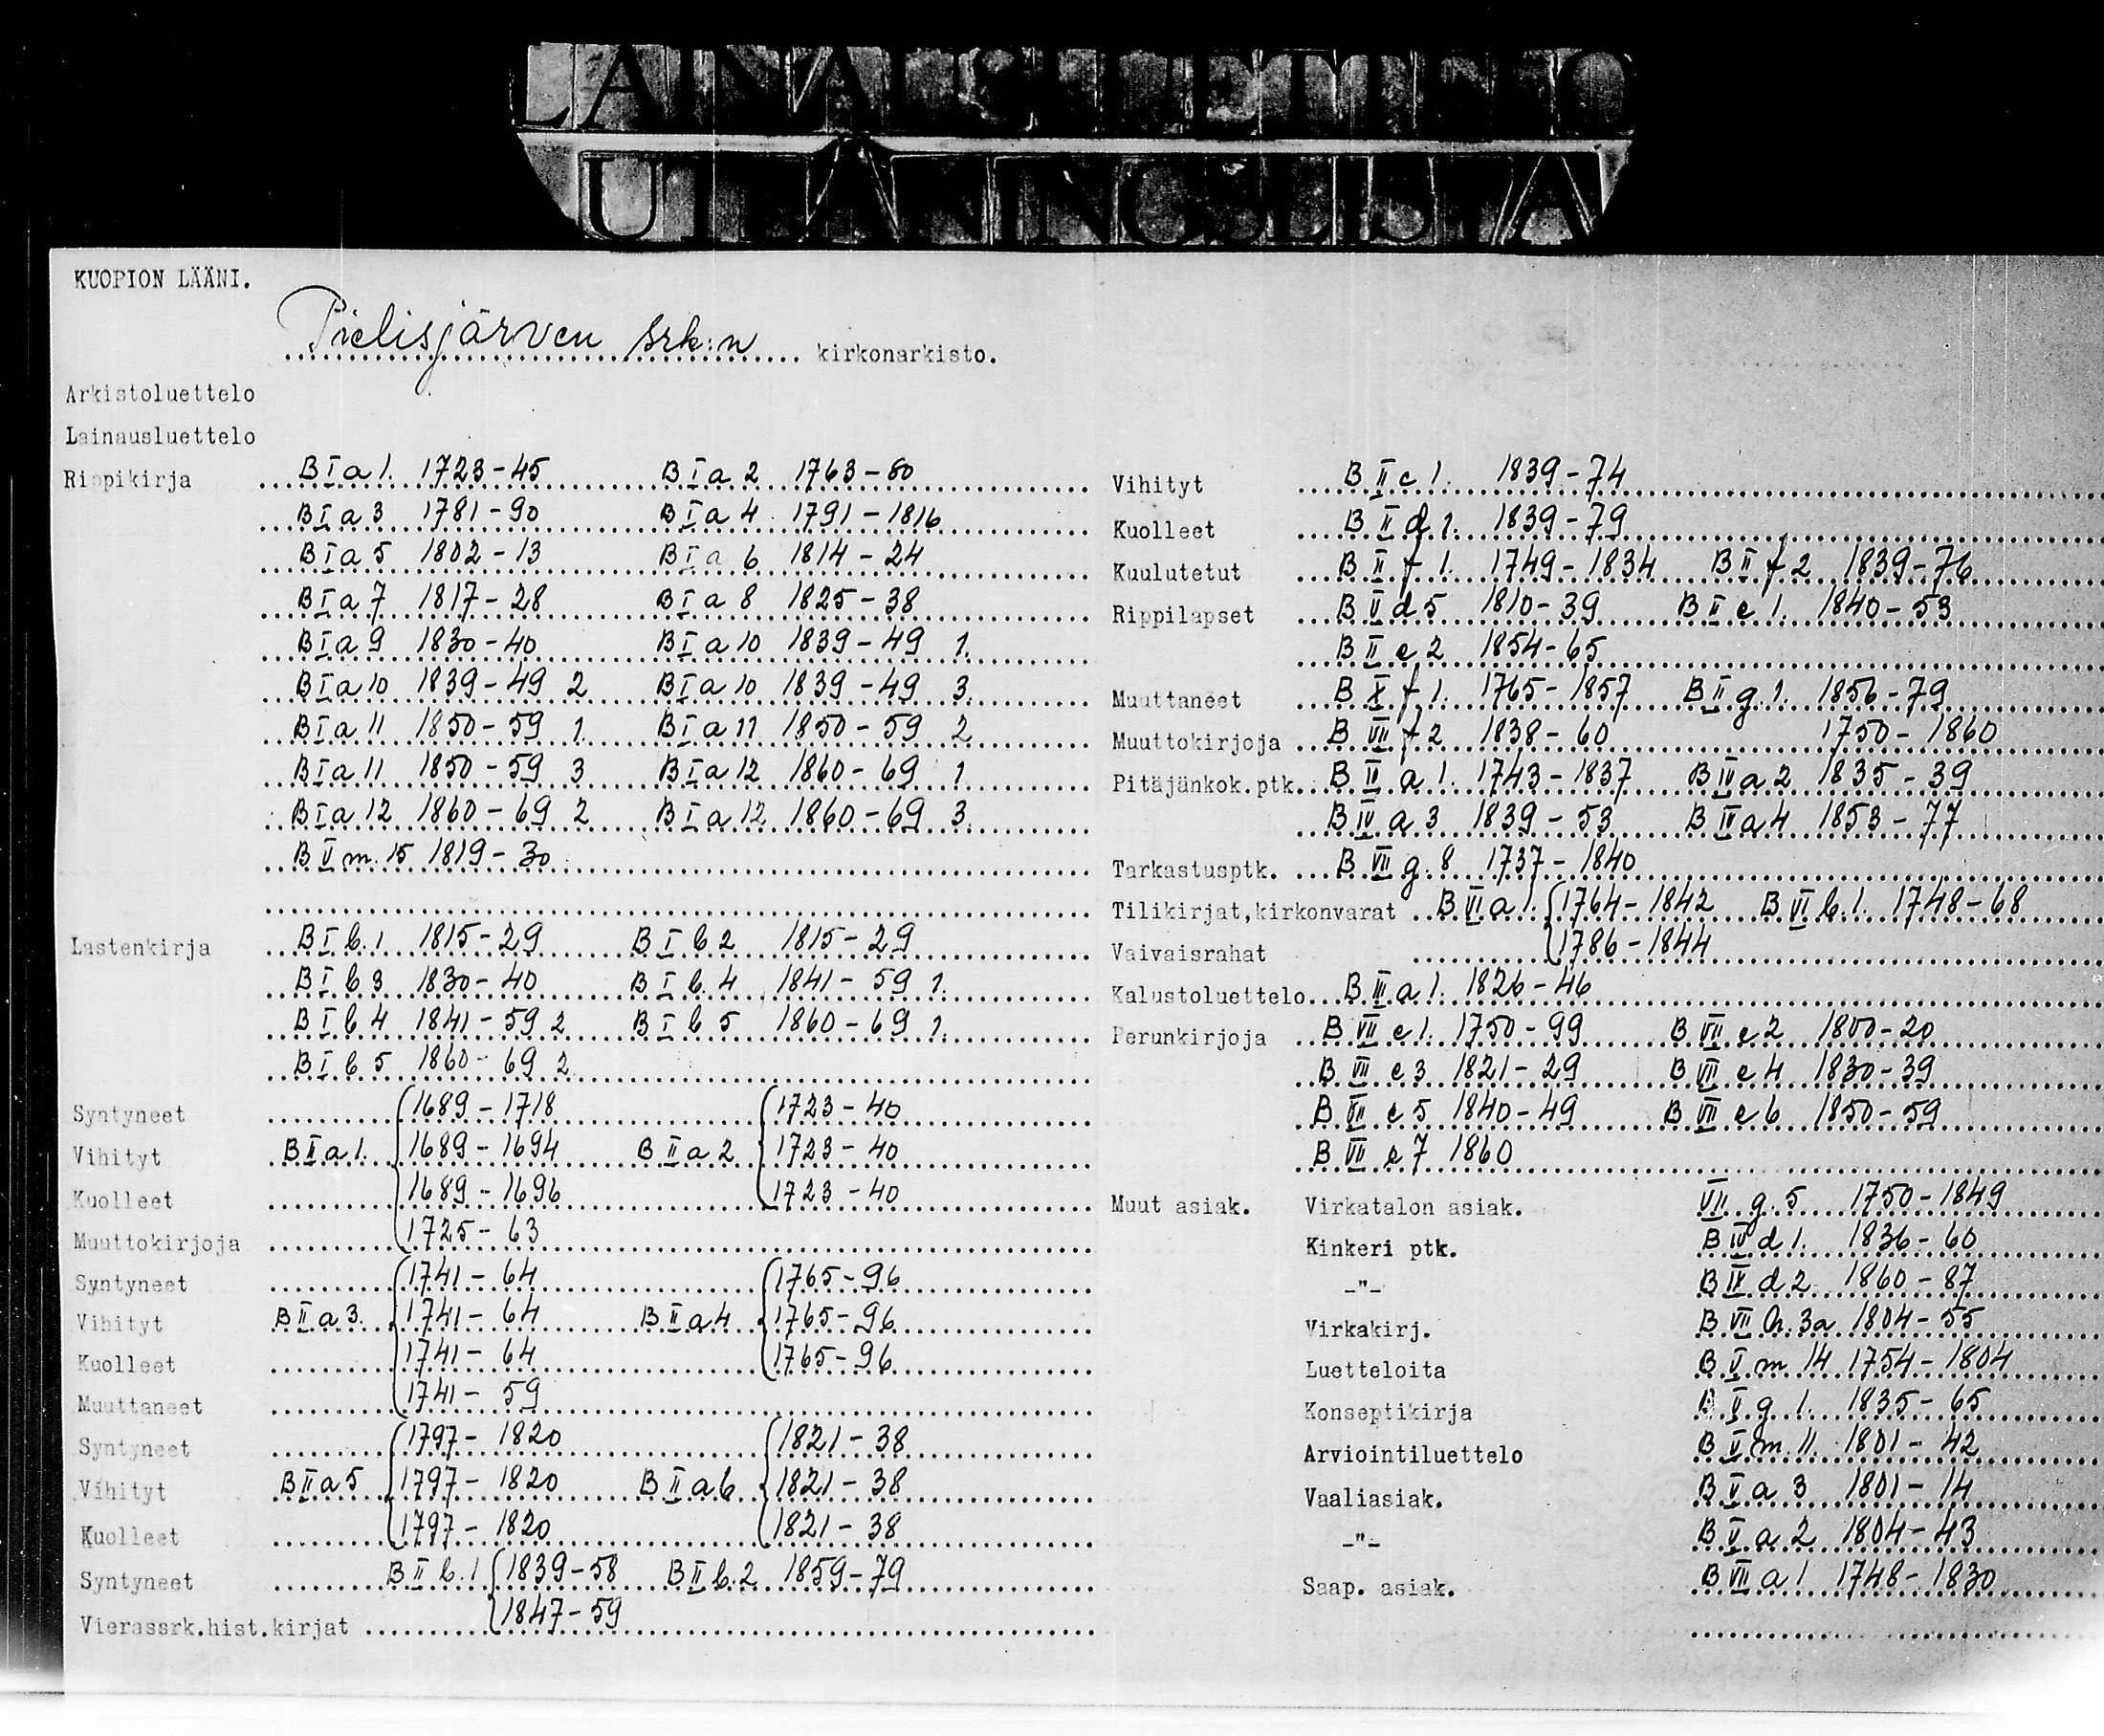 LAINAUSLUETTELO
UTLÅNINGSLISTA
KUOPION LÄÄNI.
Pielisjärven srk:n kirkonarkisto.
Arkistoluettelo
Lainausluettelo
Rippikirja B I a 1. 1723-45 B I a 2 1763-80
B I a 3 1781-90 B I a 4 1791-1816
B I a 5 1802-13 B I a 6 1814-24
B I a 7 1817-28 B I a 8 1825-38
B I a 9 1830-40 B I a 10 1839-49 1.
B I a 10 1839-49 2 B I a 10 1839-49 3.
B I a 11 1850-59 1. B I a 11 1850-59 2
B I a 11 1850-59 3 B I a 12 1860-69 1
B I a 12 1860-69 2 B I a 12 1860-69 3.
B V m. 15 1819-30
Lastenkirja B I b. 1 1815-29 B I b 2 1815-29
B I b 3 1830-40 B I b. 4 1841-59 1.
B I b. 4 1841-59 2 B I b 5 1860-69 1.
B I b 5 1860-69 2
Syntyneet 1689-1718 1723-40
Vihityt B II a 1. 1689-1694 B II a 2 1723-40
Kuolleet 1689-1696 1723-40
Muuttokirjoja 1725-63
Syntyneet 1741-64 1765-96
Vihityt B II a 3. 1741-64 B II a 4 1765-96
Kuolleet 1741-64 1765-96
Muuttaneet 1741-59
Syntyneet 1797-1820 1821-38
Vihityt B II a 5 1797-1820 B II a 6 1821-38
Kuolleet 1797-1820 1821-38
Syntyneet B II b. 1 1839-58 B II b. 2 1859-79
Vierassrk.hist.kirjat 1847-59
Vihityt B II c 1. 1839-74
Kuolleet B II d 1. 1839-79
Kuulutetut B II f 1. 1749-1834 B II f 2 1839-76
Rippilapset B V d 5 1810-39 B II e 1. 1840-53
B II e 2 1854-65
Muuttaneet B X f 1. 1765-1857 B II g. 1. 1856-79
Muuttokirjoja B VII f 2 1838-60 1750-1860
Pitäjänkok.ptk. B IV a 1. 1743-1837 B IV a 2 1835-39
B IV a 3 1839-53 B IV a 4 1853-77
Tarkastusptk. B VII g. 8 1737-1840
Tilikirjat,kirkonvarat B VI a 1. 1764-1842 B VI b. 1. 1748-68
Vaivaisrahat 1786-1844
Kalustoluettelo B III a 1. 1826-46
Perunkirjoja B VII e 1. 1750-99 B VII e 2 1800-20
B VII e 3 1821-29 B VII e 4 1830-39
B VII e 5 1840-49 B VII e 6 1850-59
B VII e 7 1860
Muut asiak. Virkatalon asiak. VII g. 5 1750-1849
Kinkeri ptk. B IV d 1. 1836-60
-"- B IV d 2 1860-87
Virkakirj. B VII h. 3a 1804-55
Luetteloita B V m 14 1754-1804
Konseptikirja B V g 1. 1835-65
Arviointiluettelo B V m. 11. 1801-42
Vaaliasiak. B V a 3 1801-14
-"- B V a 2 1804-43
Saap. asiak. B VII a 1 1748-1830